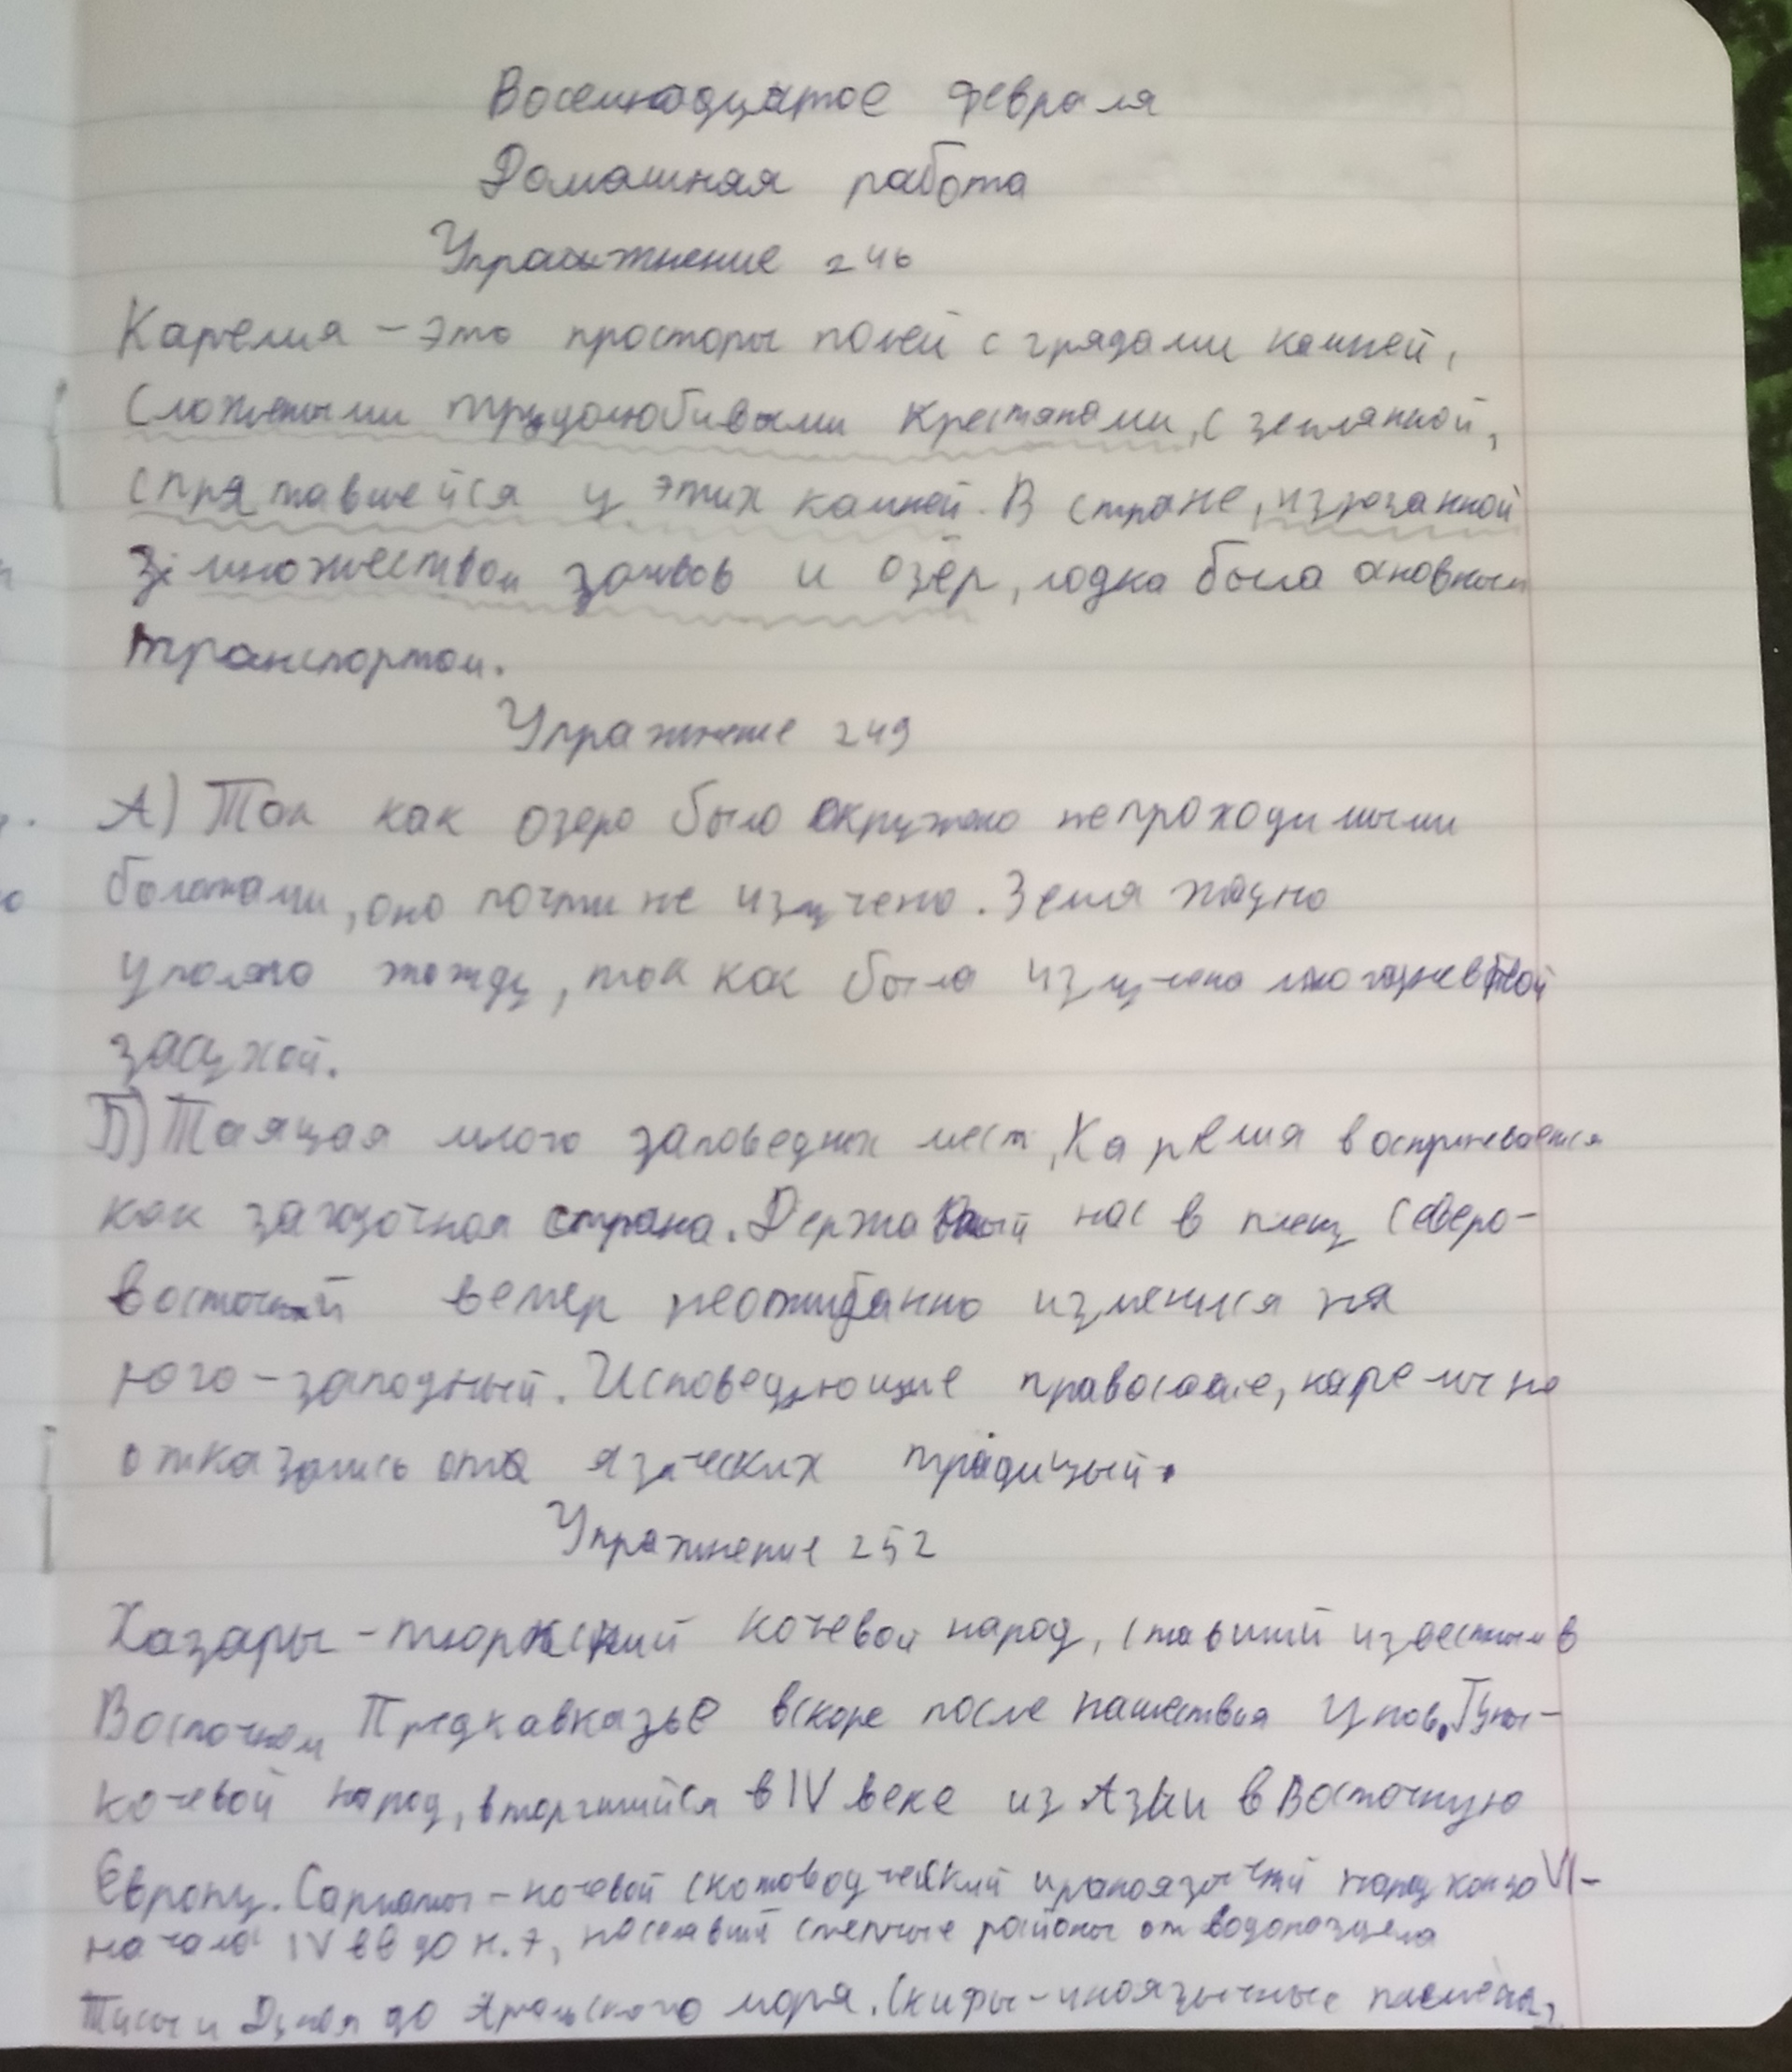 Восемнадцатое февраля
Домашняя работа
Упражнение 246
Карелия - это просторы полей с грядами камней,
сложеными трудолюбивыми крестянами, с землянкой,
спрятавшейся у этих камней. В стране, изрезанной
множеством заливов и озёр, лодка была основным
транспортом.
Упражнение 249
А) Так как озеро было окружено непроходимыми
болотами, оно почти не изучено. Земля жадно
утоляла жажду, так как была измучена многодневной
засухой.
Б) Таящая много заповедных мест, Карелия воспринивается
как загадочная страна. Державший нас в плену северо-
восточный ветер неожиданно изменился на
юго-западный. Исповедующие православие, карелы не
отказались от языческих традицый.
Упражнение 252
Хазары - тюркский кочевой народ, ставший известным в
Восточном Предкавказье вскоре после нашествия гунов. Гуны -
кочевой народ, вторгшийся в IV веке из Азии в Восточную
Европу. Сарматы - кочевой скотоводческий ираноязычный народ конца VI -
начала IV вв до н. э, населявший степные районы от водораздела
Тисы и Дуная до Аральского моря. Скифы - ираноязычные племена,